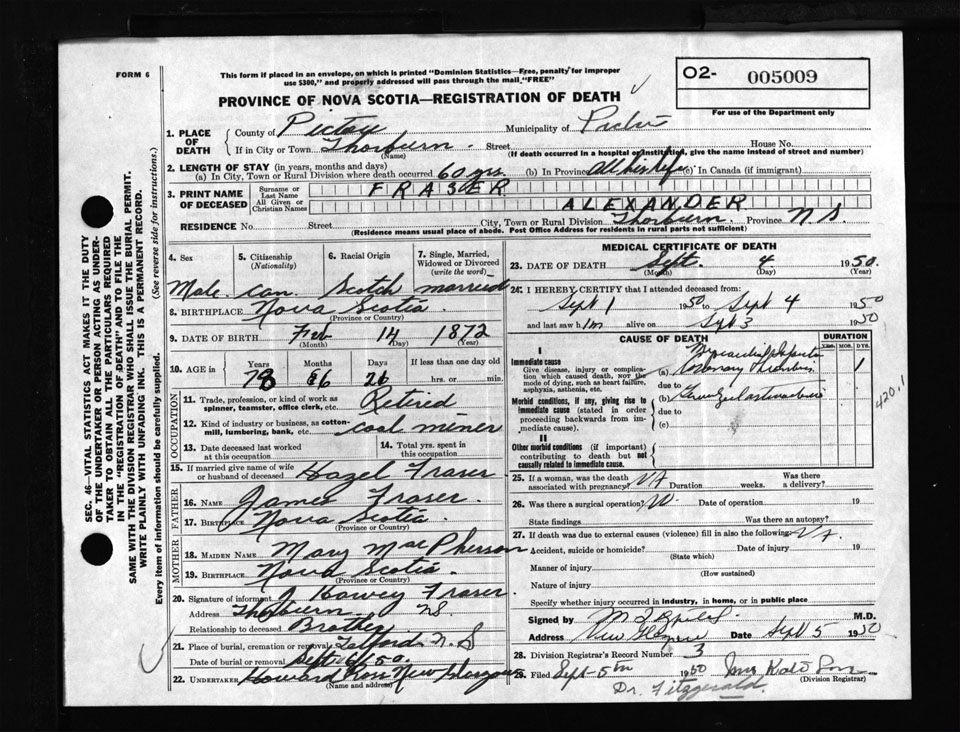 FORM 6
This form if placed in an envelope, on which is printed "Dominion Statistics—Free, penalty for improper use $300," and properly addressed will pass through the mail "FREE"
O2- 005009
For use of the Department only
PROVINCE OF NOVA SCOTIA—REGISTRATION OF DEATH
1. PLACE OF DEATH County of Pictou Municipality of Pictou
If in City or Town Thorburn. Street House No.
(Name) (If death occurred in a hospital or institution, give the name instead of street and number)
2. LENGTH OF STAY (in years, months and days)
(a) In City, Town or Rural Division where death occurred 60 yrs. (b) In Province All his life (c) In Canada (if immigrant)
3. PRINT NAME OF DECEASED
Surname or Last Name FRASER
All Given or Christian Names ALEXANDER
RESIDENCE No. Street City, Town or Rural Division Thorburn. Province N.S.
(Residence means usual place of abode. Post Office Address for residents in rural parts not sufficient)
4. Sex 5. Citizenship (Nationality) 6. Racial Origin 7. Single, Married, Widowed or Divorced (write the word)
Male. Can. Scotch married
8. BIRTHPLACE Nova Scotia
(Province or Country)
9. DATE OF BIRTH Feb 14 1872
(Month) (Day) (Year)
10. AGE in Years Months Days If less than one day old
78 6 hrs. or min.
OCCUPATION
11. Trade, profession, or kind of work as spinner, teamster, office clerk, etc. Retired
12. Kind of industry or business, as cotton-mill, lumbering, bank, etc. coal miner
13. Date deceased last worked at this occupation 14. Total yrs. spent in this occupation
15. If married give name of wife or husband of deceased Hazel Fraser
FATHER
16. Name James Fraser.
17. Birthplace Nova Scotia.
(Province or Country)
MOTHER
18. MAIDEN NAME Mary MacPherson
19. BIRTHPLACE Nova Scotia.
(Province or Country)
20. Signature of informant J. Howey Fraser.
Address Thorburn NS
Relationship to deceased Brother
21. Place of burial, cremation or removal Telford N.S
Date of burial or removal Sept 6/50.
22. UNDERTAKER Howard Ross New Glasgow
(Name and address)
MEDICAL CERTIFICATE OF DEATH
23. DATE OF DEATH Sept. 4 1950.
(Month) (Day) (Year)
24. I HEREBY CERTIFY that I attended deceased from:
Sept 1 1950 to Sept 4 1950
and last saw him alive on Sept 3 1950
CAUSE OF DEATH DURATION
YRS. MOS. DYS.
I
Immediate cause
Give disease, injury or complication which caused death, not the mode of dying, such as heart failure, asphyxia, asthenia, etc.
(a) Coronary Thrombosis 1
due to
Morbid conditions, if any, giving rise to immediate cause (stated in order proceeding backwards from immediate cause).
(b)
due to
(c)
420.1
II
Other morbid conditions (if important) contributing to death but not causally related to immediate cause.
25. If a woman, was the death associated with pregnancy? Duration weeks. Was there a delivery?
26. Was there a surgical operation? Date of operation 19
State findings Was there an autopsy?
27. If death was due to external causes (violence) fill in also the following:
Accident, suicide or homicide? Date of injury 19
(State which)
Manner of injury
(How sustained)
Nature of injury
Specify whether injury occurred in industry, in home, or in public place
Signed by M.D.
Address New Glasgow Date Sept 5 1950
28. Division Registrar's Record Number 3
29. Filed Sept 5th 1950
(Division Registrar)
Dr. Fitzgerald.
SEC. 46—VITAL STATISTICS ACT MAKES IT THE DUTY OF THE UNDERTAKER OR PERSON ACTING AS UNDERTAKER TO OBTAIN ALL THE PARTICULARS REQUIRED IN THE "REGISTRATION OF DEATH" AND TO FILE THE SAME WITH THE DIVISION REGISTRAR WHO SHALL ISSUE THE BURIAL PERMIT.
WRITE PLAINLY WITH UNFADING INK. THIS IS A PERMANENT RECORD.
Every item of information should be carefully supplied. (See reverse side for instructions.)